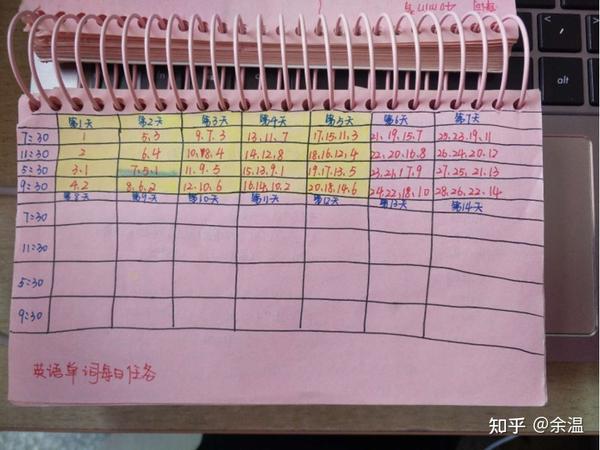 第1天 第2天 第3天 第4天 第5天 第6天 第7天
7:30 5,3 9,7,3 13,11,7 17,15,11,3 21,19,15,7 25,23,19,11
11:30 2 6,4 10,8,4 14,12,8 18,16,12,4 22,20,16,8 26,24,20,12
5:30 3,1 7,5,1 11,9,5 15,13,9,1 19,17,13,5 23,21,17,9 27,25,21,13
9:30 4,2 8,6,2 12,10,6 16,14,10,2 20,18,14,6 24,22,18,10 28,26,22,14
第8天 第9天 第10天 第11天 第12天 第13天 第14天
7:30
11:30
5:30
9:30
英语单词每日任务
alt
知乎 @余温